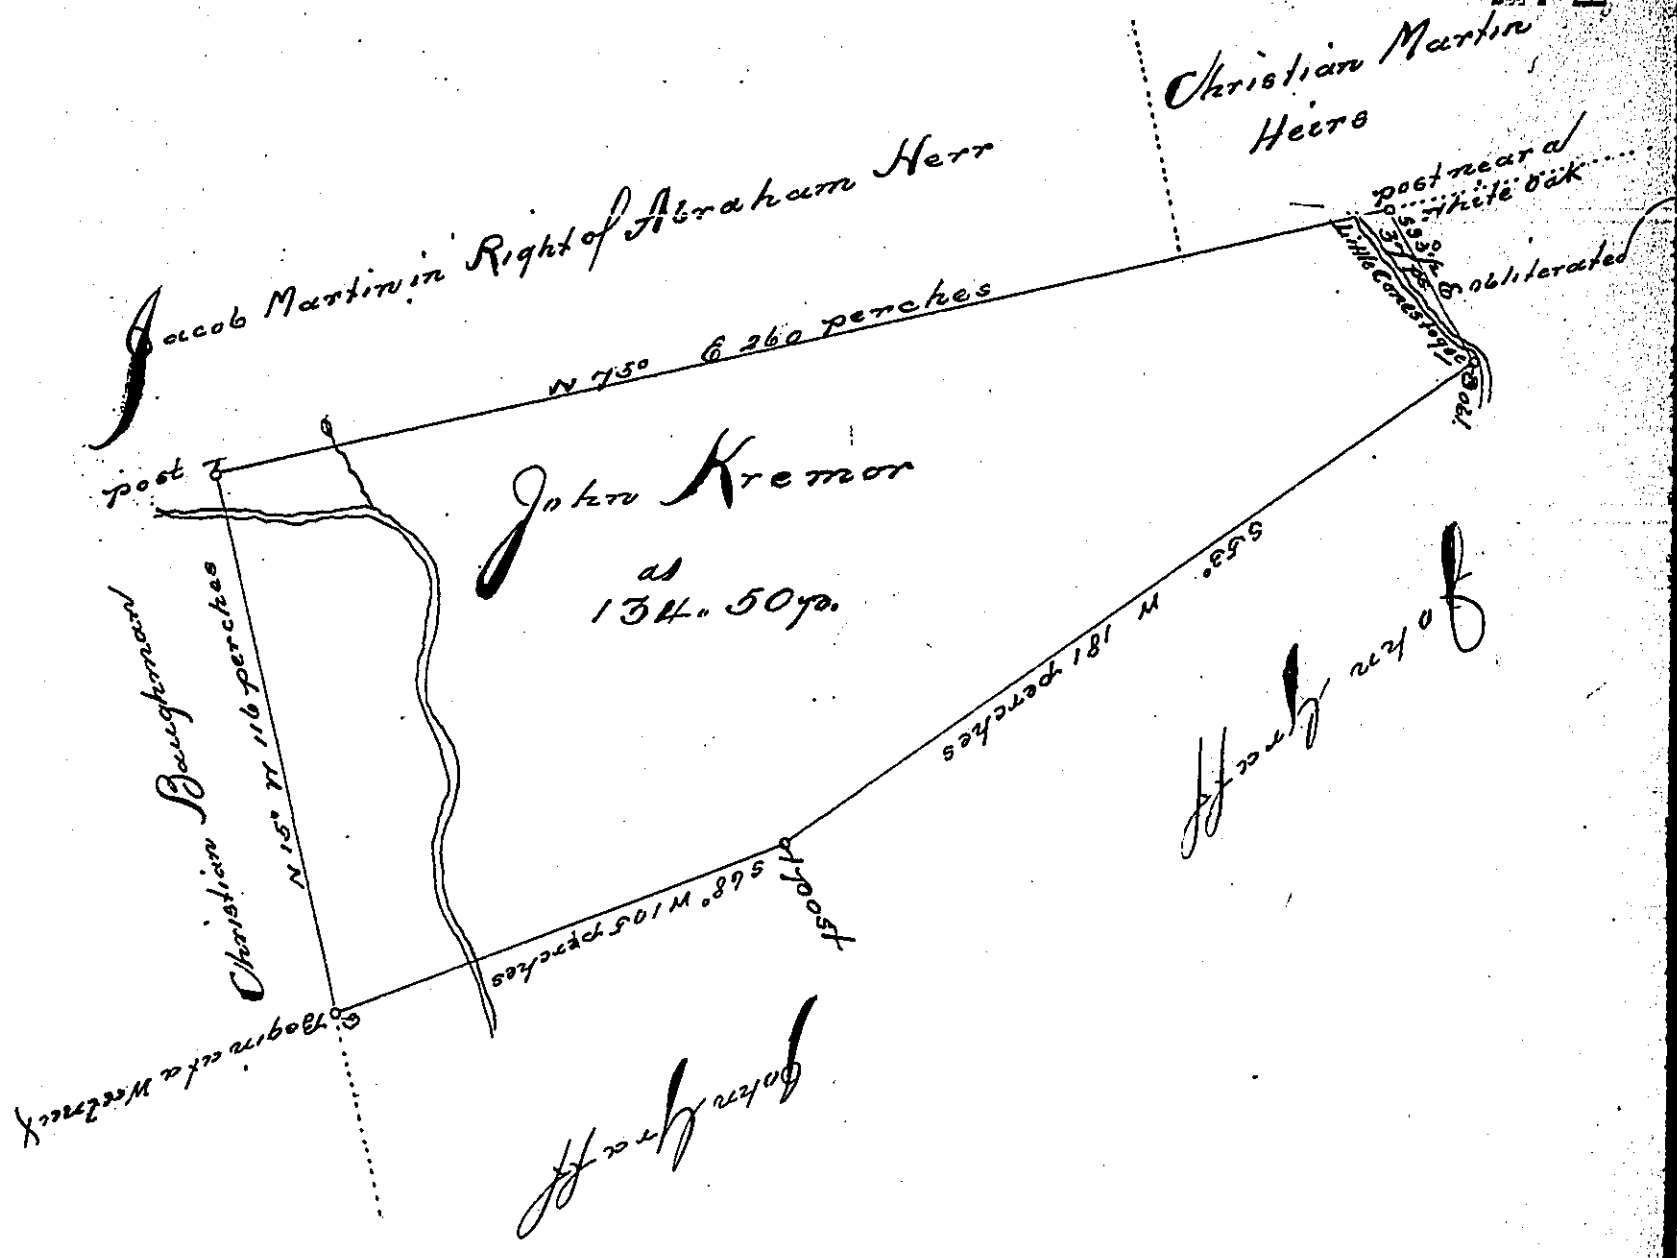 Christian Martin
Heirs
post near a
White Oak
S 53½ E obliterated
37 ps
Little Conestogoe
Obl.
Jacob Martin in Right of Abraham Herr
N 75° E 260 perches
post
John Kremor
as
134. 50 p.
Christian Baughman
N 15° W 116 perches
S 53° W 181 perches
John Graff
post
S 68° W 105 perches
Begin at a
John Graff